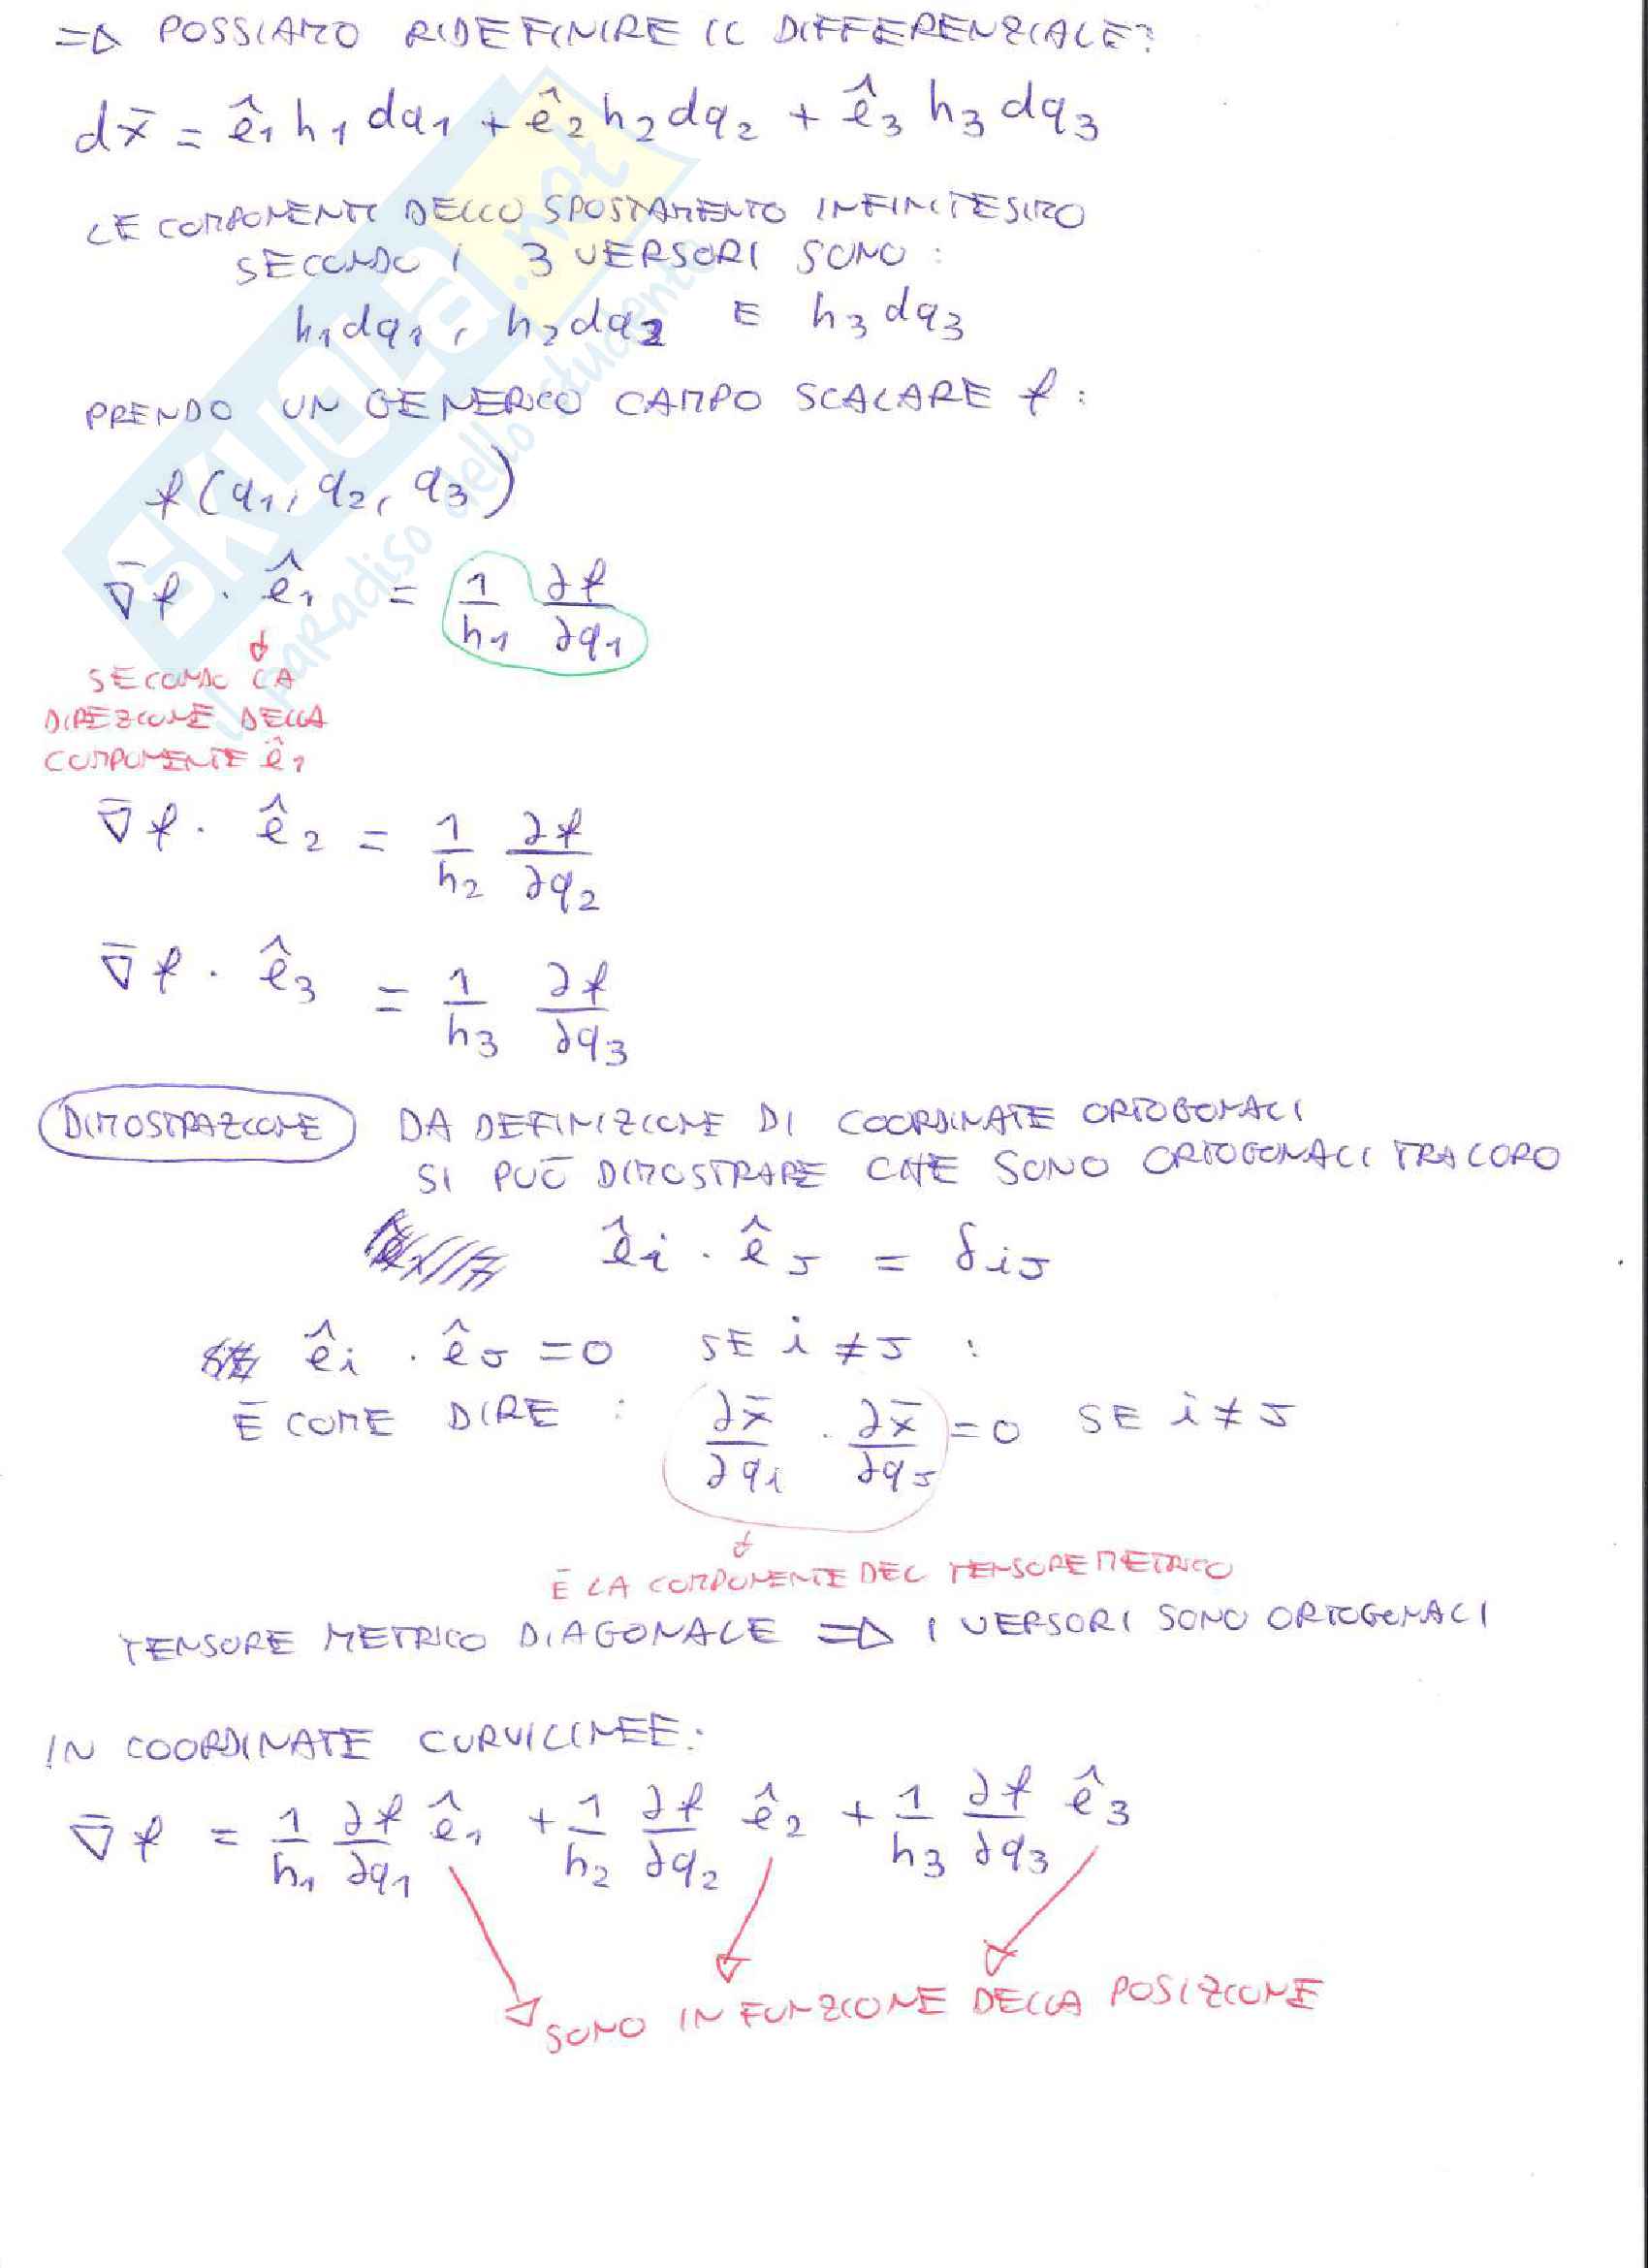 => POSSIAMO RIDEFINIRE IL DIFFERENZIALE:
dx̄ = ê₁ h₁ dq₁ + ê₂ h₂ dq₂ + ê₃ h₃ dq₃
LE COMPONENTI DELLO SPOSTAMENTO INFINITESIMO
SECONDO I 3 VERSORI SONO:
h₁dq₁, h₂dq₂ E h₃dq₃
PRENDO UN GENERICO CAMPO SCALARE f:
f(q₁, q₂, q₃)
∇̄f · ê₁ = 1/h₁ ∂f/∂q₁
SECONDO LA
DIREZIONE DELLA
COMPONENTE ê₁
∇̄f · ê₂ = 1/h₂ ∂f/∂q₂
∇̄f · ê₃ = 1/h₃ ∂f/∂q₃
DIMOSTRAZIONE DA DEFINIZIONE DI COORDINATE ORTOGONALI
SI PUÒ DIMOSTRARE CHE SONO ORTOGONALI TRA LORO
êi · êJ = δiJ
êi · êJ = 0 SE i ≠ J :
È COME DIRE : ∂x̄/∂qi · ∂x̄/∂qJ = 0 SE i ≠ J
È LA COMPONENTE DEL TENSORE METRICO
TENSORE METRICO DIAGONALE => I VERSORI SONO ORTOGONALI
IN COORDINATE CURVILINEE:
∇̄f = 1/h₁ ∂f/∂q₁ ê₁ + 1/h₂ ∂f/∂q₂ ê₂ + 1/h₃ ∂f/∂q₃ ê₃
SONO IN FUNZIONE DELLA POSIZIONE
SKUOLA.net
il paradiso dello studente